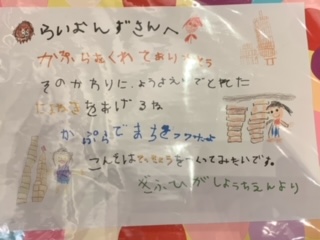 らいおんずさんへ
かぷらをくれてありがとう
そのかわりに、ようちえんでとれた
をあげるね
かぷらでまちをつくったよ
こんどは をつくってみたいです。
ぎふひがしようちえんより